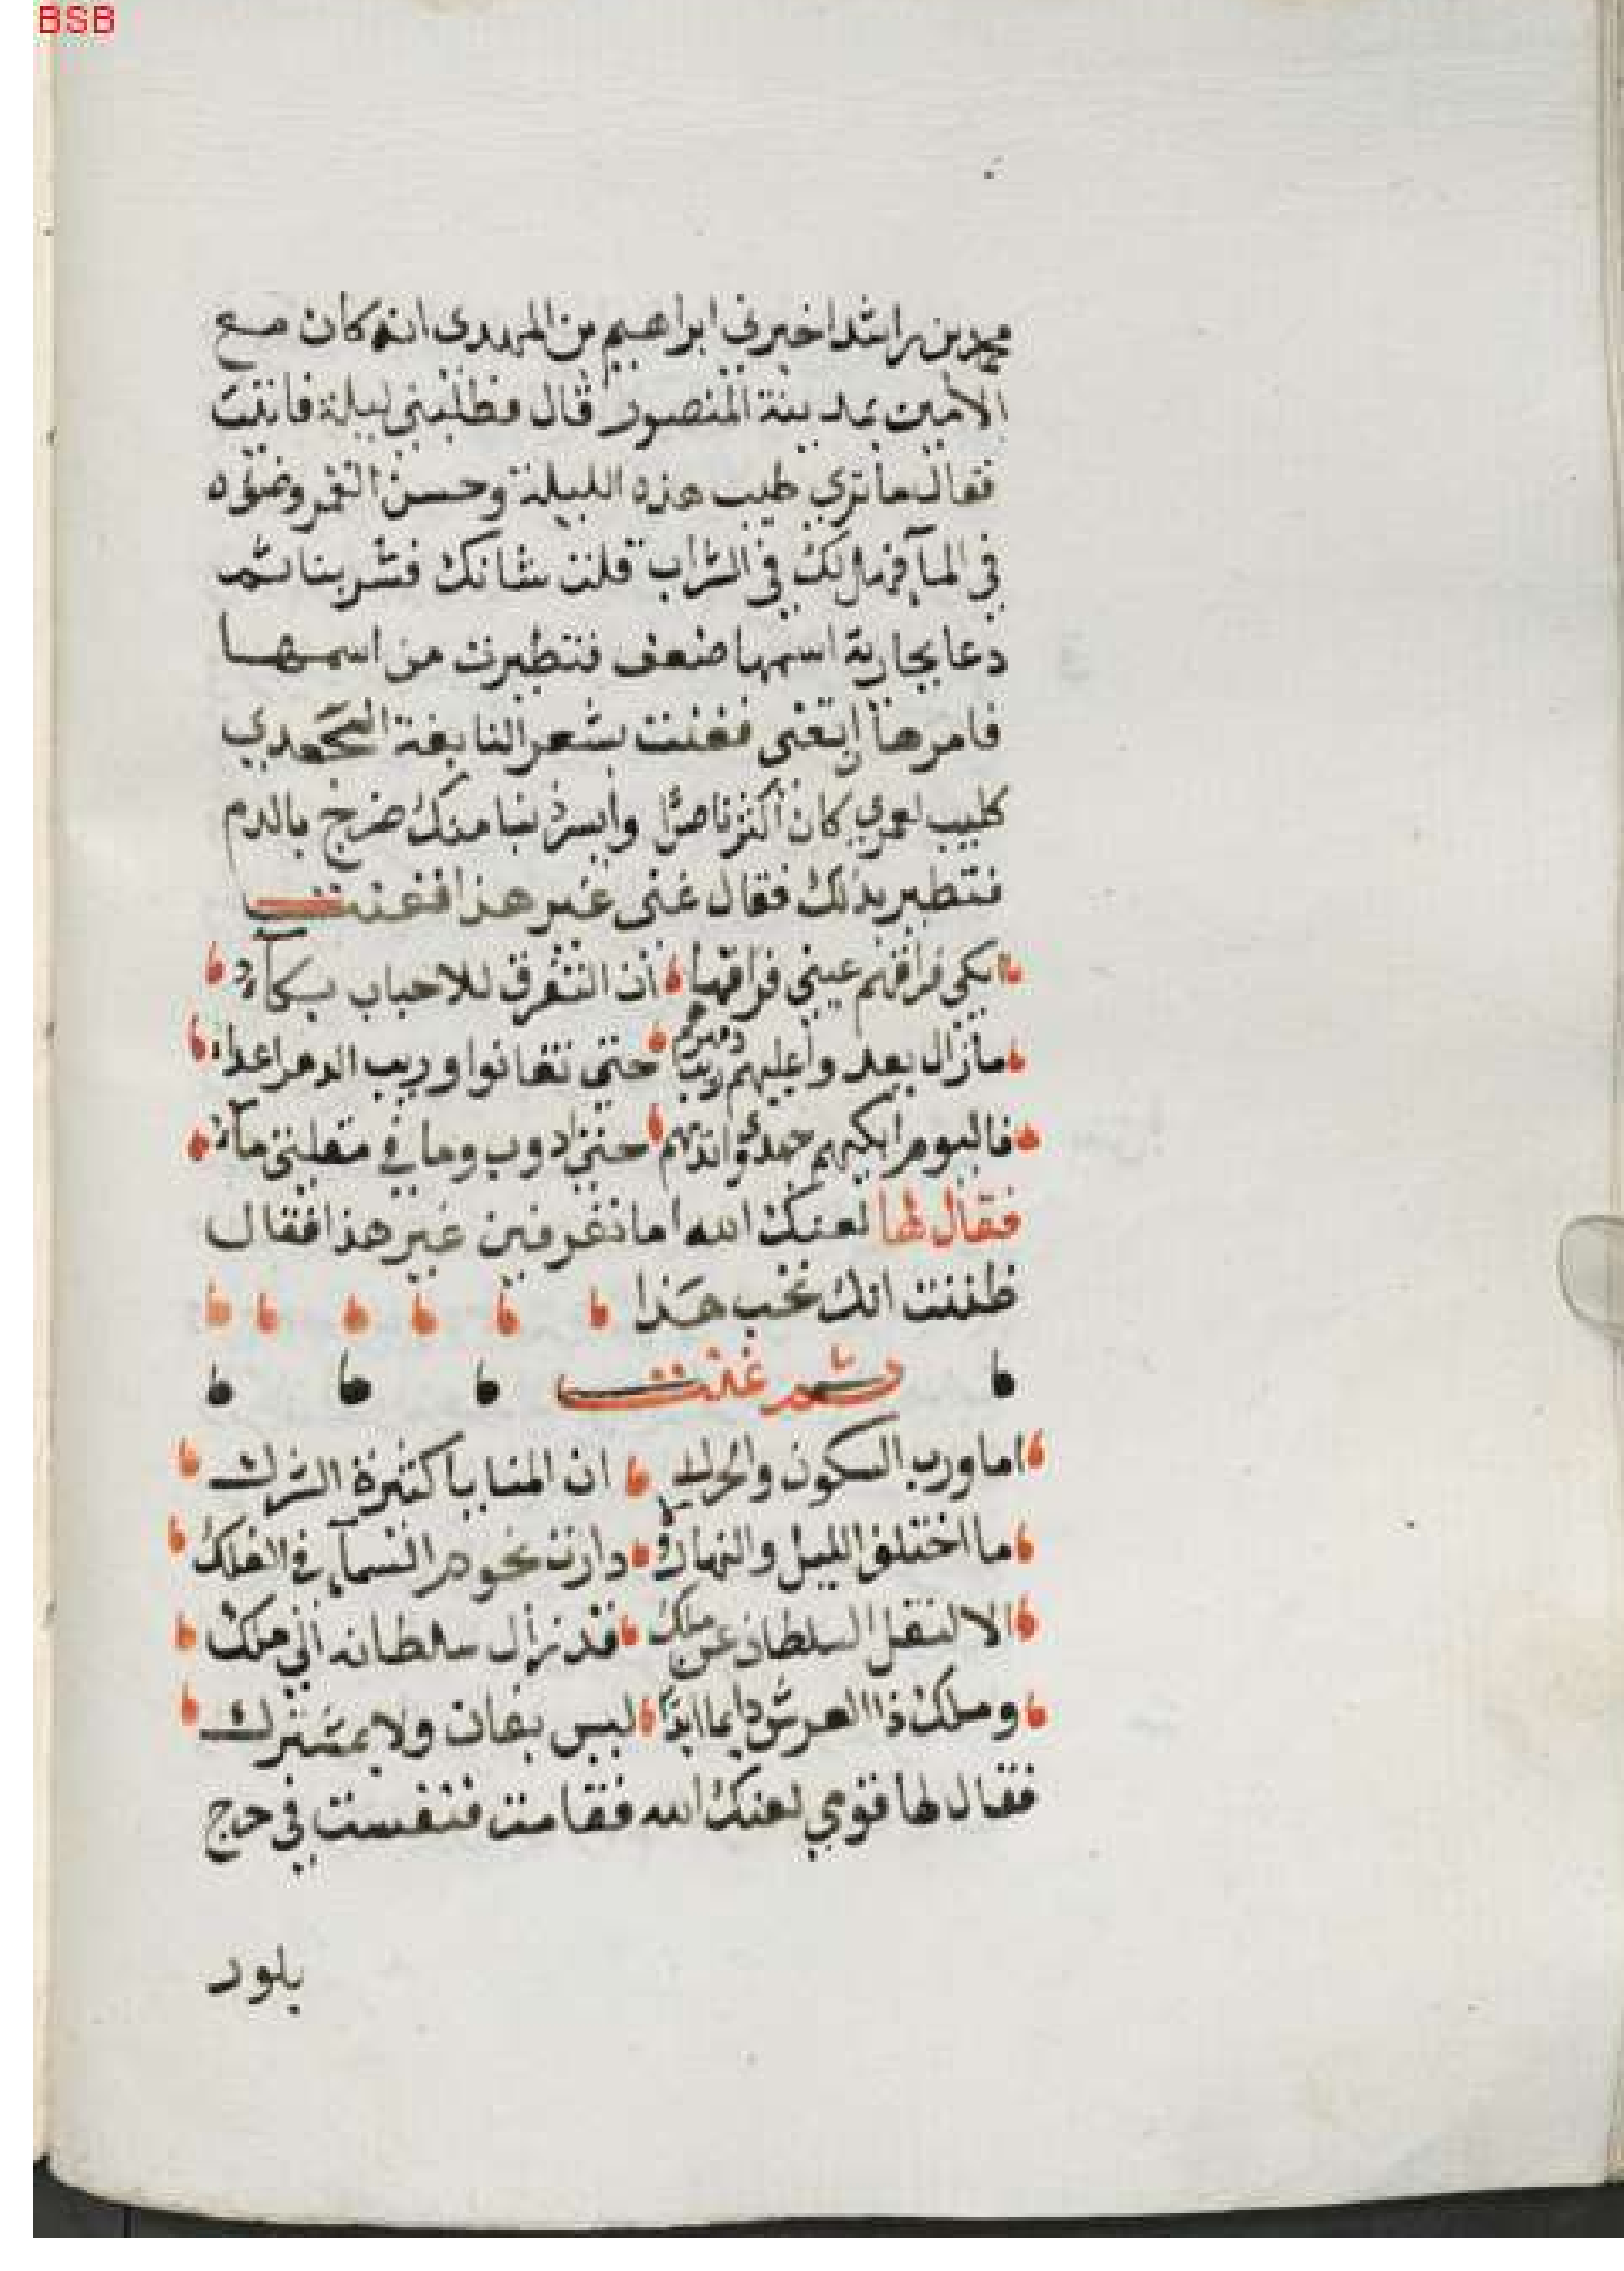 BSB
محمد بن راشد اخبرني ابراهيم بن المهدي انه كان مع
الامين بمدينة المنصور قال فطلبني ليلة فاتيت
فقال ما تري طيب هذه الليلة وحسن القمر وضوءه
في المآ فهل لك في الشراب قلت شانك فشربنا ثم
دعا بجارية اسمها ضعف فتطيرت من اسمها
فامرها ان تغني فغنت بشعر النابغة الجعدي
كليب لعمري كان اكثر ناصرا وأيسر ذنبا منك ضرج بالدم
فتطير بذلك فقال غني غير هذا فغنت
ابكي فراقهم عيني فراقها ان التفرق للاحباب بكآء
مازال يعدوا عليهم ريب دهرهم حتي تفانوا وريب الدهر اعداء
فاليوم ابكيهم جهدي واندبهم حتي ادوب وما في مقلتي مآء
فقال لها لعنك الله اما تعرفين غير هذا فقال
ظننت انك تحب هذا
ثم غنت
اما ورب السكون والحرك ان المنايا كثيرة الشرك
ما اختلف الليل والنهار و دارت نجوم السمآء في الفلك
الا لنقل السلطان عن ملك قد زال سلطانه الي ملك
وملك ذا العرش دايما ابدا ليس بفان ولا بمشترك
فقال لها قومي لعنك الله فقامت فتفست في حرج
بلور